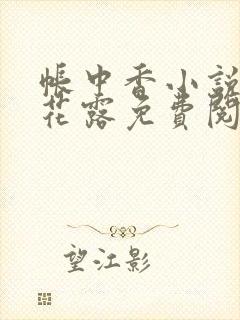 帳中香小說
花露免費閱
望江影